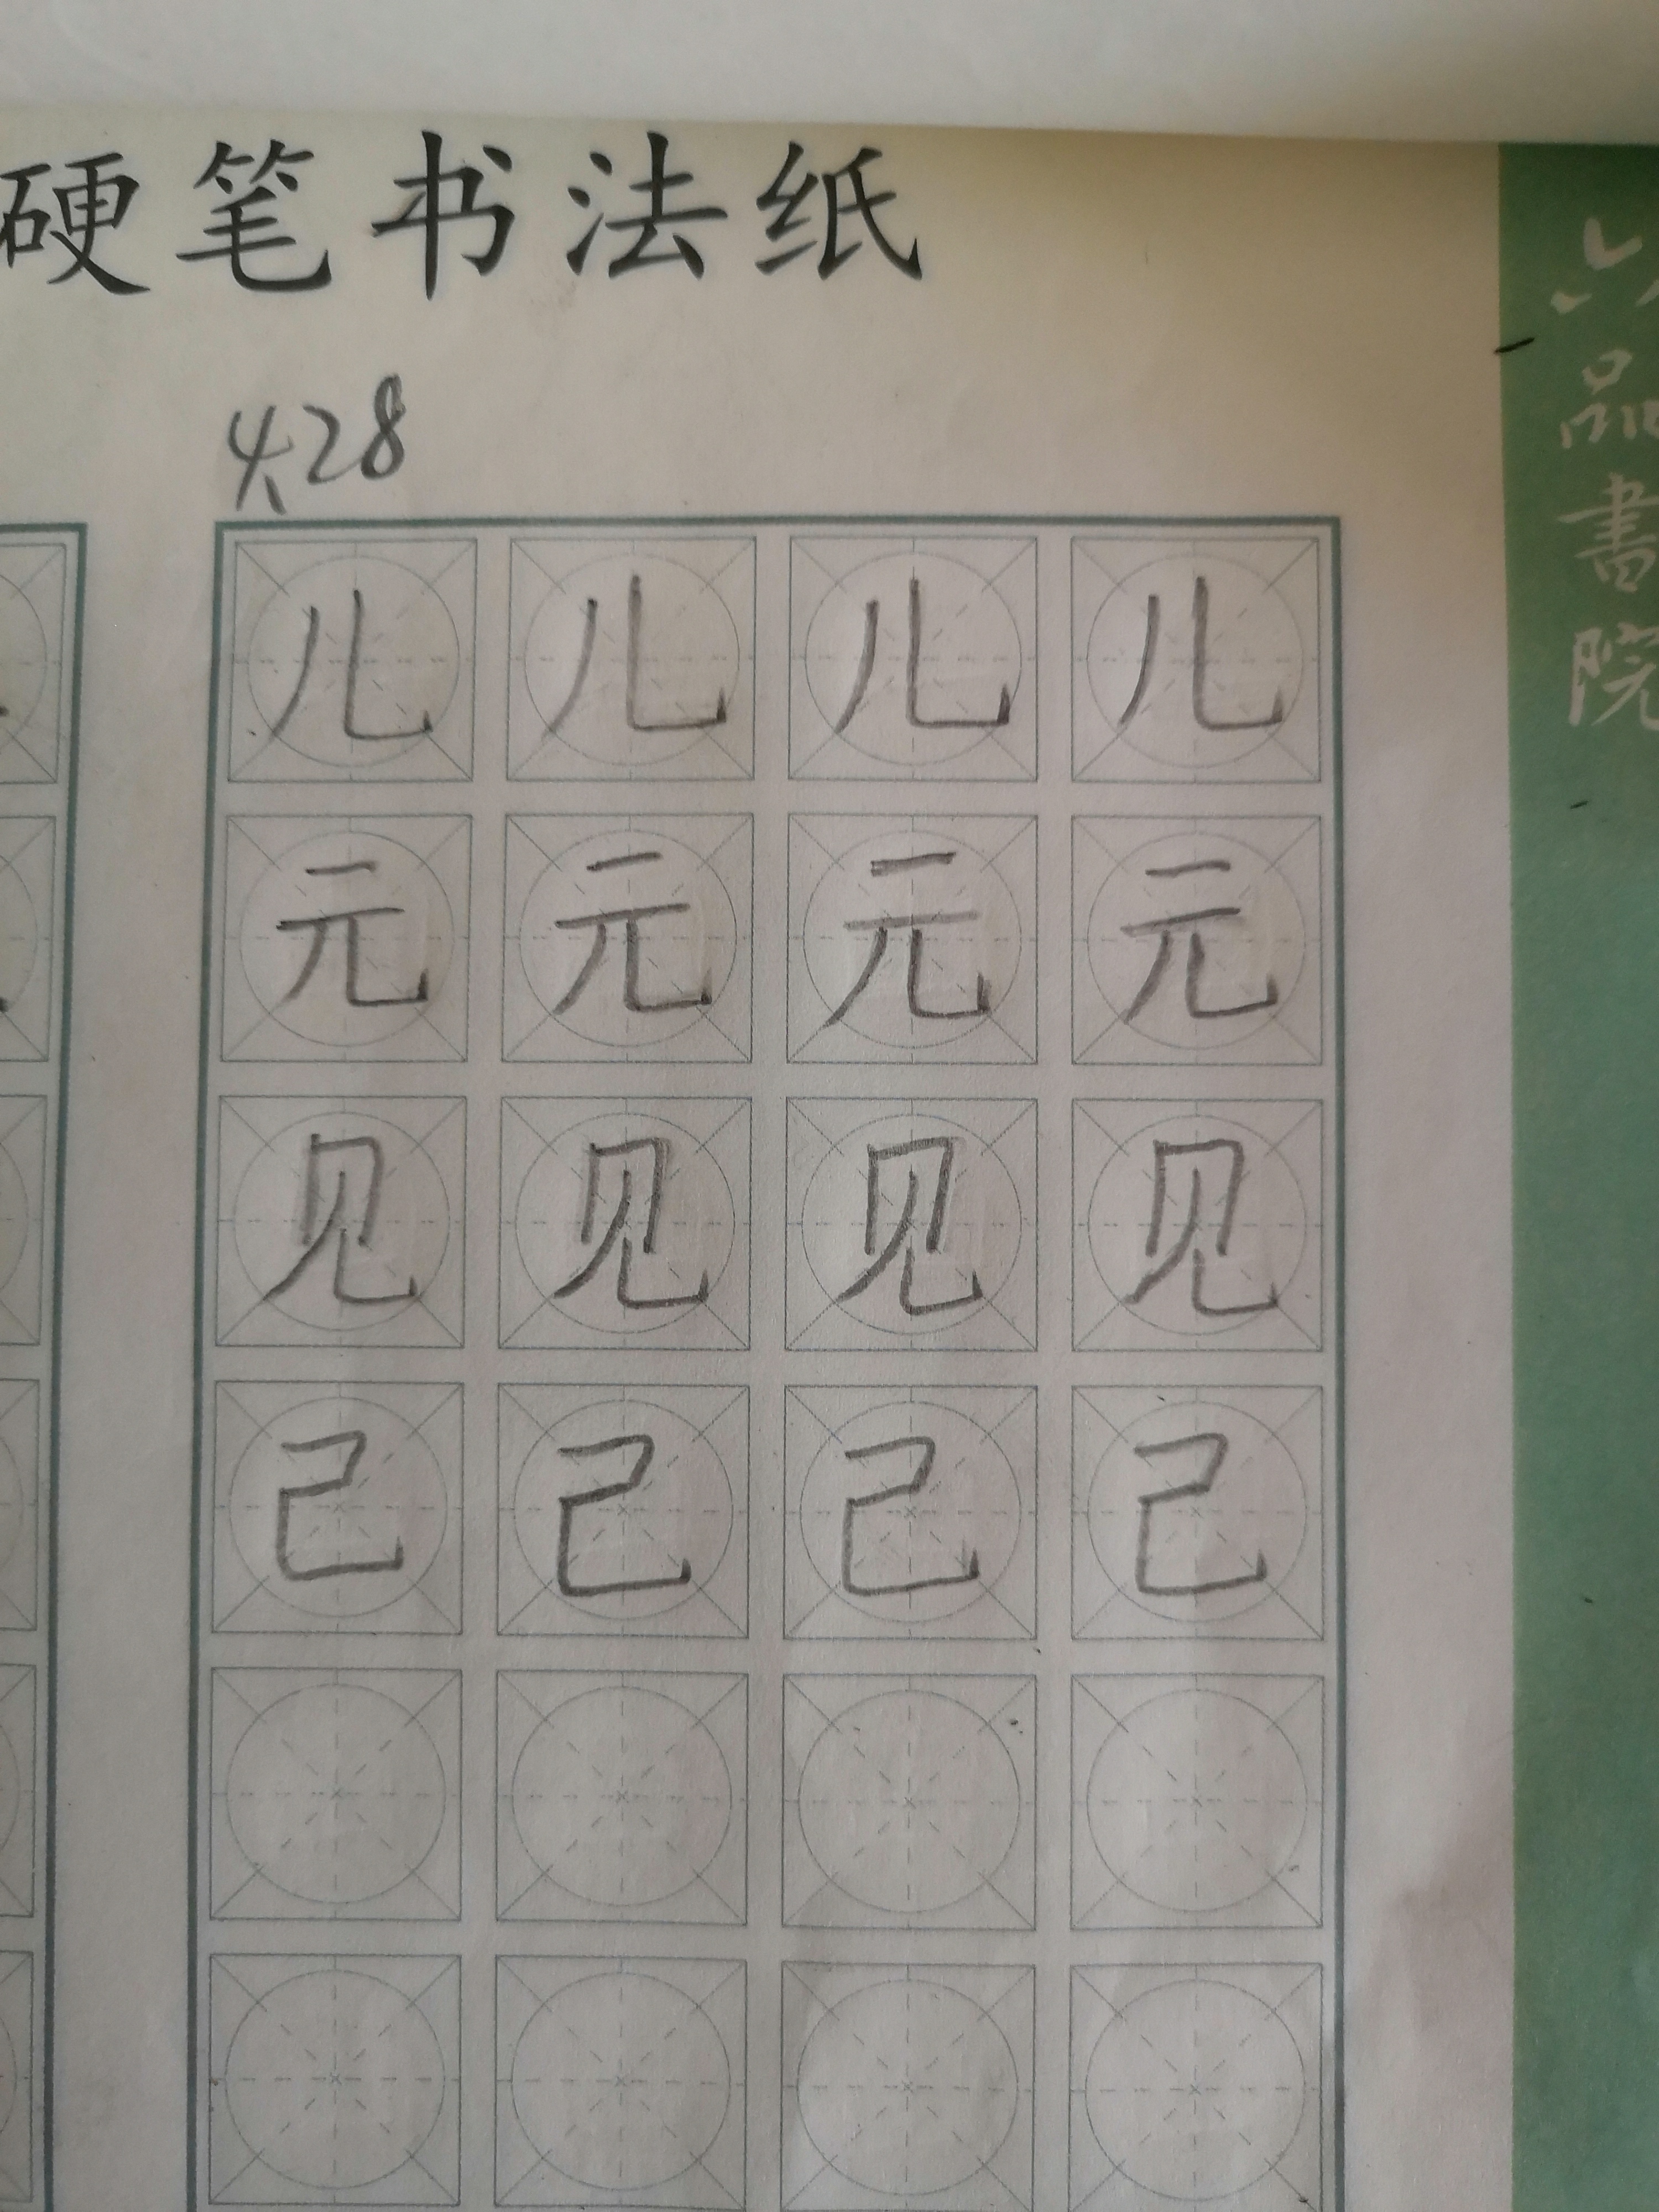 硬笔书法纸
4.28
儿 儿 儿 儿
元 元 元 元
见 见 见 见
己 己 己 己
品書院